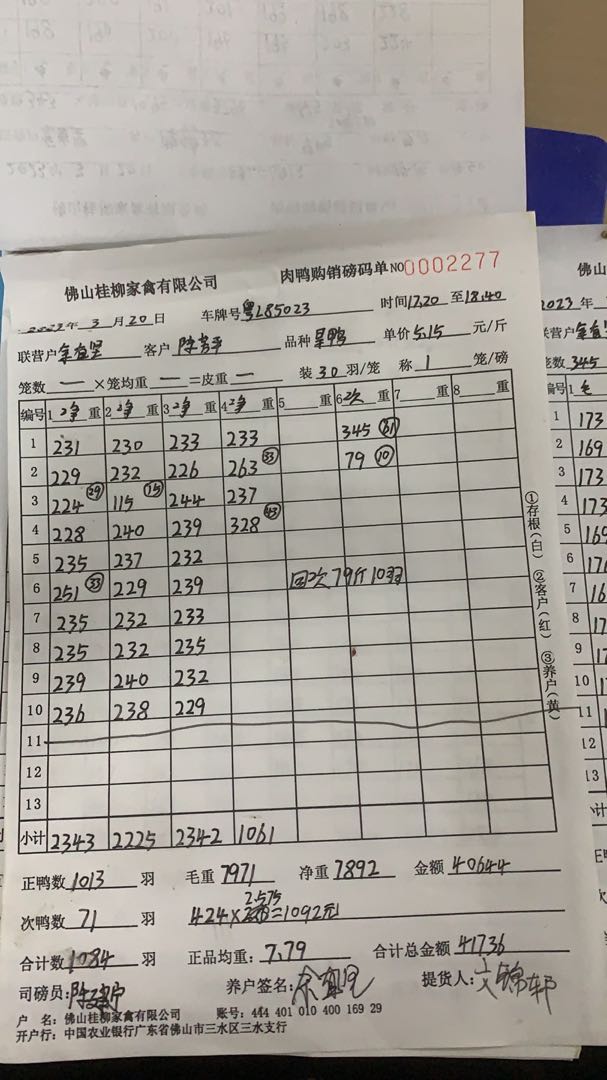 佛山桂柳家禽有限公司 肉鸭购销磅码单 NO 0002277
2023年 3 月 20 日 车牌号 粤L85023 时间 17.20 至 18.40
联营户 客户 品种 单价 5.15 元/斤
笼数 一 ×笼均重 一 =皮重 一 装 30 羽/笼 称 1 笼/磅
编号 1 净 重 2 净 重 3 净 重 4 净 重 5 重 6 次 重 7 重 8 重
1 231 230 233 233 345 (61)
2 229 232 226 263 (33) 79 (10)
3 224 (29) 115 (15) 244 237
4 228 240 239 328 (43)
5 235 237 232
6 251 (33) 229 239 回次79斤10羽
7 235 232 233
8 235 232 235
9 239 240 232
10 236 238 229
11
12
13
小计 2343 2225 2342 1061
①存根(白) ②客户(红) ③养户(黄)
正鸭数 1013 羽 毛重 7971 净重 7892 金额 40644
次鸭数 71 羽 424×2.575=1092元
合计数 1084 羽 正品均重: 7.79 合计总金额 41736
司磅员: 养户签名: 提货人:
户 名: 佛山桂柳家禽有限公司 账号: 444 401 010 400 169 29
开户行: 中国农业银行广东省佛山市三水区三水支行
2023 年
联营户
笼数 345
编号 1
1 173
2 169
3 173
4 173
5 169
6
7
8
9
10
11
12
13